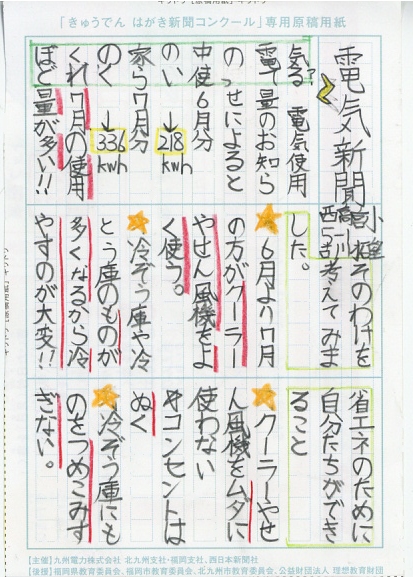 「きゅうでん はがき新聞コンクール」専用原稿用紙
電気新聞
ぼくの家の中の電気
どれくらい使ってる?
電気使用
量のお知ら
せによると
6月分
↓
218
kwh
7月分
↓
336
kwh
7月の使用
量が多い!!
そのわけを
考えてみま
した。
★6月より7月
の方がクーラー
やせん風機をよ
く使う。
★冷ぞう庫や冷
とう庫のものが
多くなるから冷
やすのが大変!!
省エネのために
自分たちができ
ること
★クーラーやせ
ん風機をムダに
使わない
★コンセントは
ぬく
★冷ぞう庫にも
のをつめこみす
ぎない。
【主催】九州電力株式会社 北九州支社・福岡支社、西日本新聞社
【後援】福岡県教育委員会、福岡市教育委員会、北九州市教育委員会、公益財団法人 理想教育財団